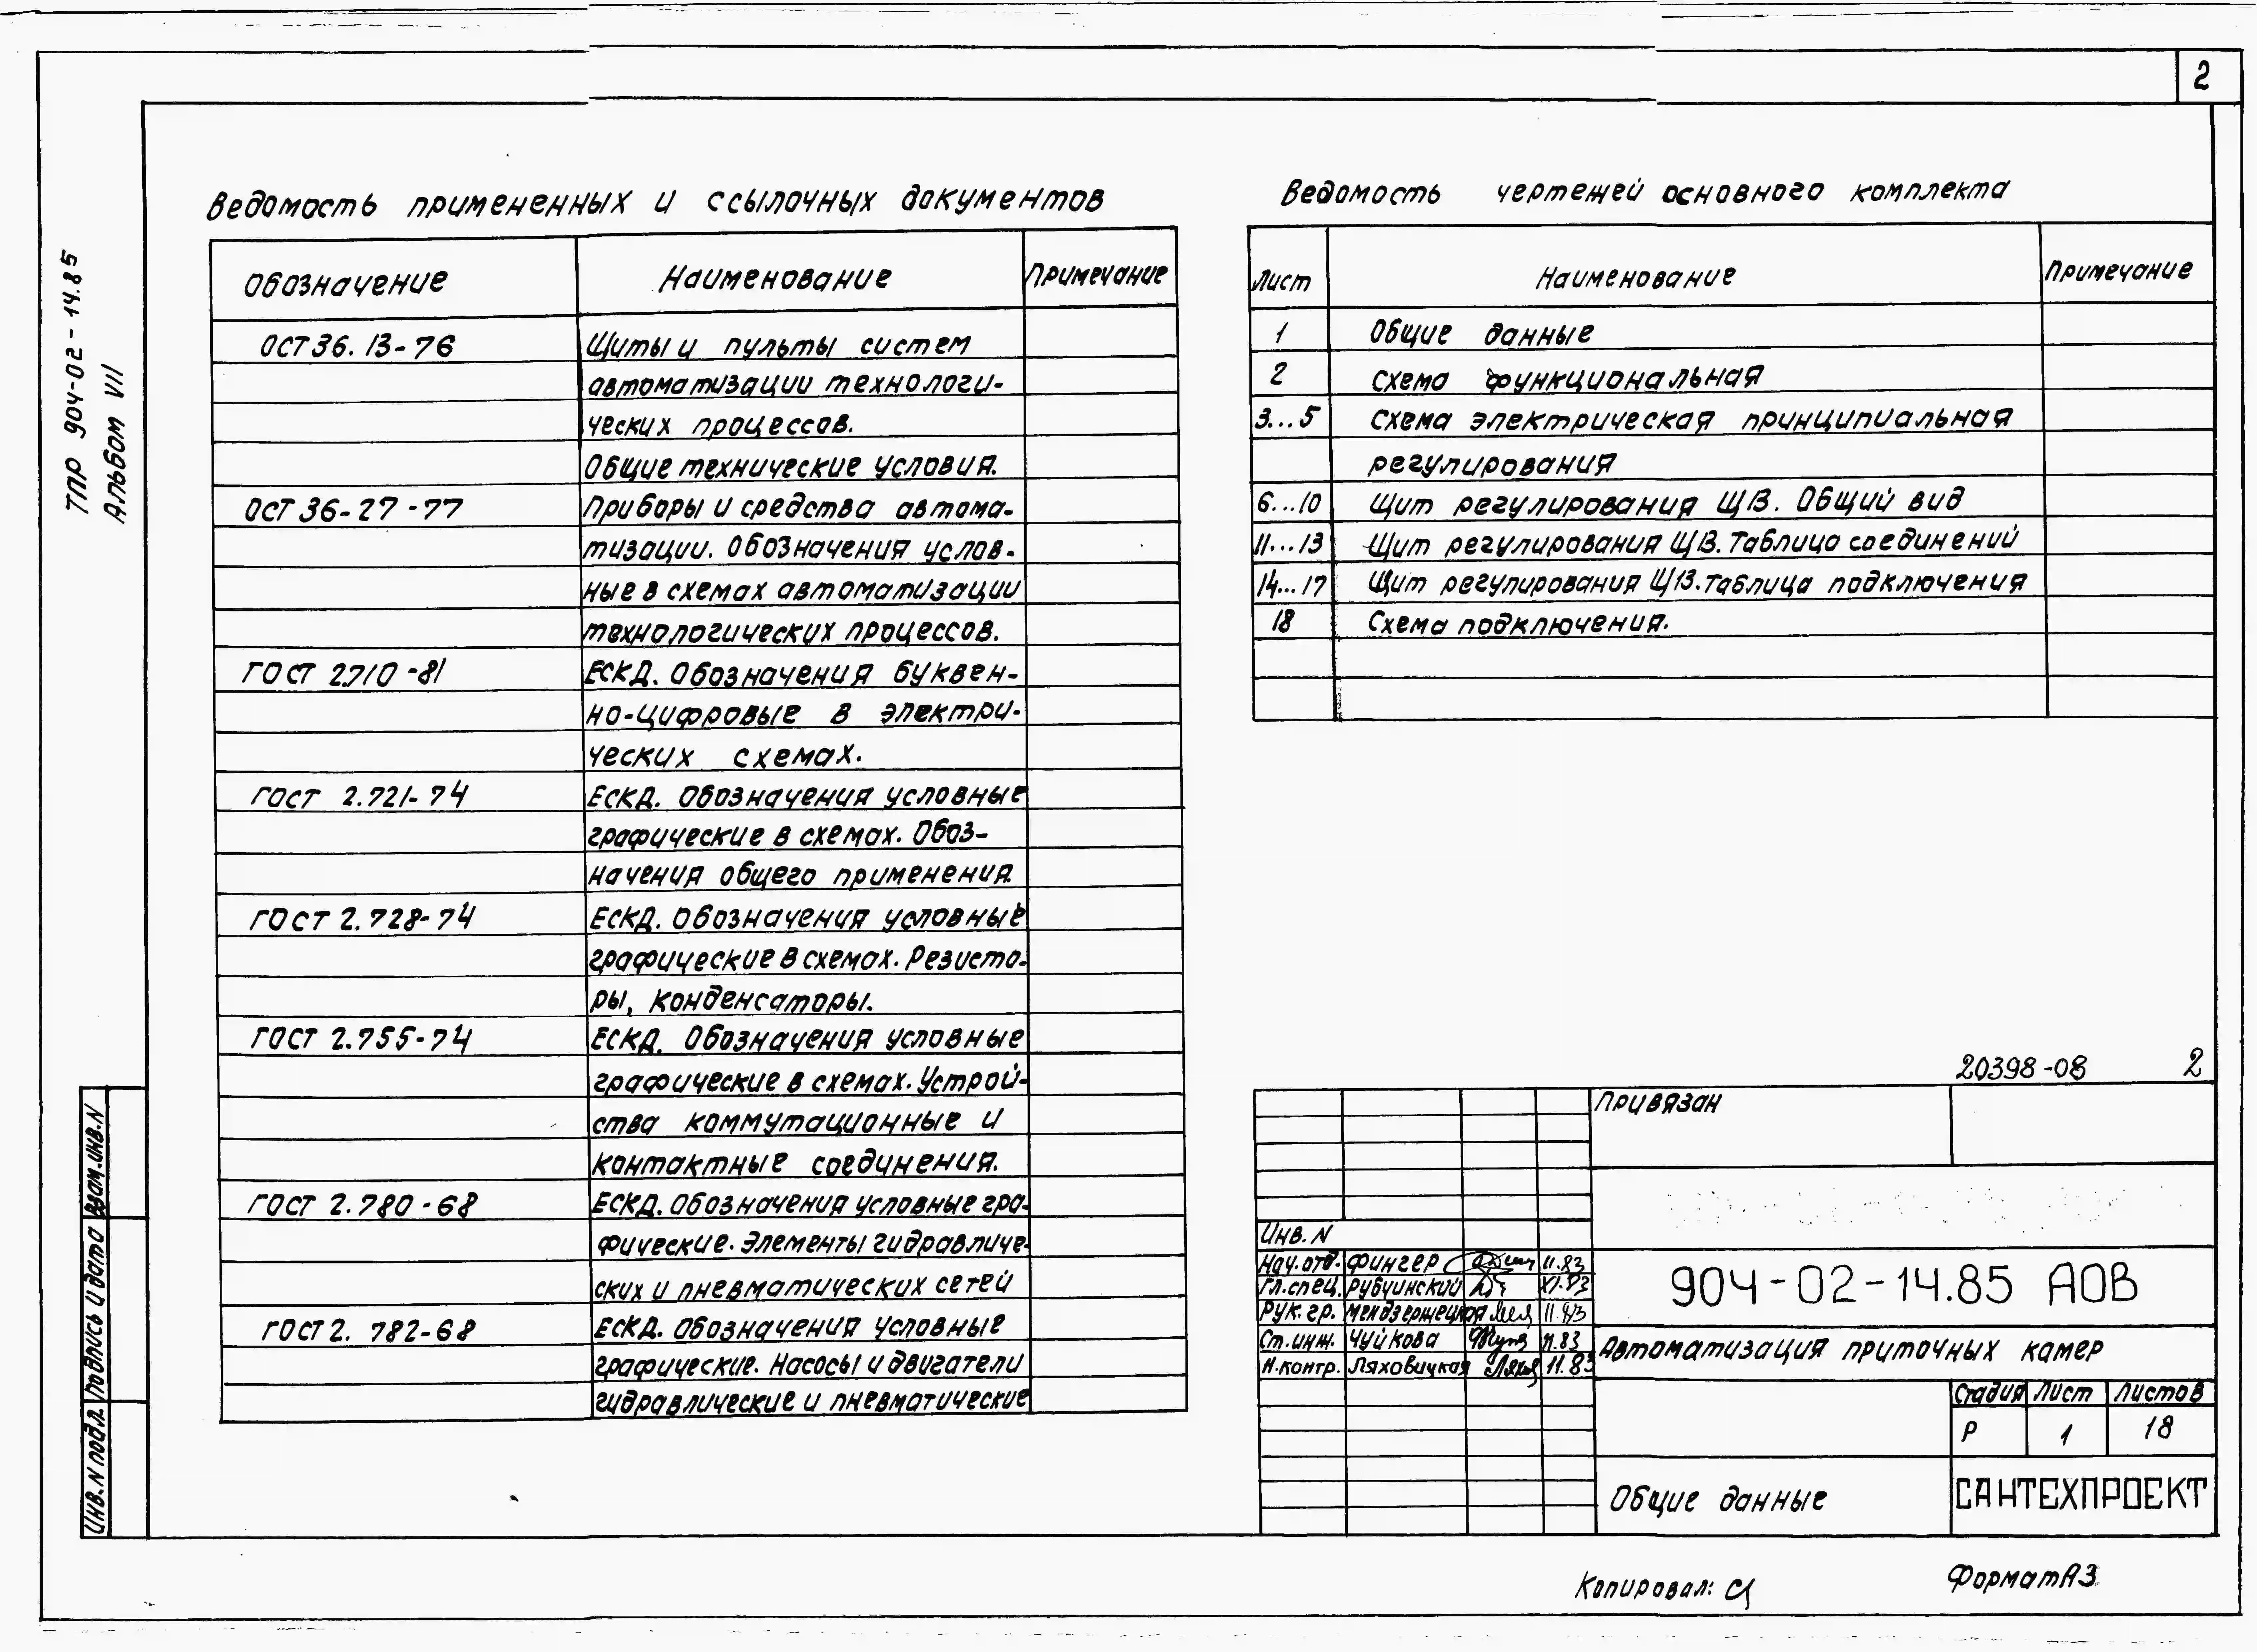 2
ТПР 904-02-14.85
Альбом VII
Ведомость примененных и ссылочных документов
Обозначение Наименование Примечание
ОСТ 36.13-76 Щиты и пульты систем
автоматизации технологи-
ческих процессов.
Общие технические условия.
ОСТ 36-27-77 Приборы и средства автома-
тизации. Обозначения услов-
ные в схемах автоматизации
технологических процессов.
ГОСТ 2.710-81 ЕСКД. Обозначения буквен-
но-цифровые в электри-
ческих схемах.
ГОСТ 2.721-74 ЕСКД. Обозначения условные
графические в схемах. Обоз-
начения общего применения.
ГОСТ 2.728-74 ЕСКД. Обозначения условные
графические в схемах. Резисто-
ры, конденсаторы.
ГОСТ 2.755-74 ЕСКД. Обозначения условные
графические в схемах. Устрой-
ства коммутационные и
контактные соединения.
ГОСТ 2.780-68 ЕСКД. Обозначения условные гра-
фические. Элементы гидравличе-
ских и пневматических сетей
ГОСТ 2.782-68 ЕСКД. Обозначения условные
графические. Насосы и двигатели
гидравлические и пневматические
Ведомость чертежей основного комплекта
Лист Наименование Примечание
1 Общие данные
2 Схема функциональная
3...5 Схема электрическая принципиальная
регулирования
6...10 Щит регулирования Щ13. Общий вид
11...13 Щит регулирования Щ13. Таблица соединений
14...17 Щит регулирования Щ13. Таблица подключения
18 Схема подключения.
20398-08 2
Привязан
Инв. N
Нач. отд. Фингер 11.83
Гл. спец. Рубчинский XI.83
Рук. гр. Мендзержецкая 11.83
Ст. инж. Чуйкова 11.83
Н. контр. Ляховицкая 11.83
904-02-14.85 АОВ
Автоматизация приточных камер
Стадия Лист Листов
Р 1 18
Общие данные
САНТЕХПРОЕКТ
Взам. инв. N
Подпись и дата
Инв. N подл.
Копировал:
Формат А3